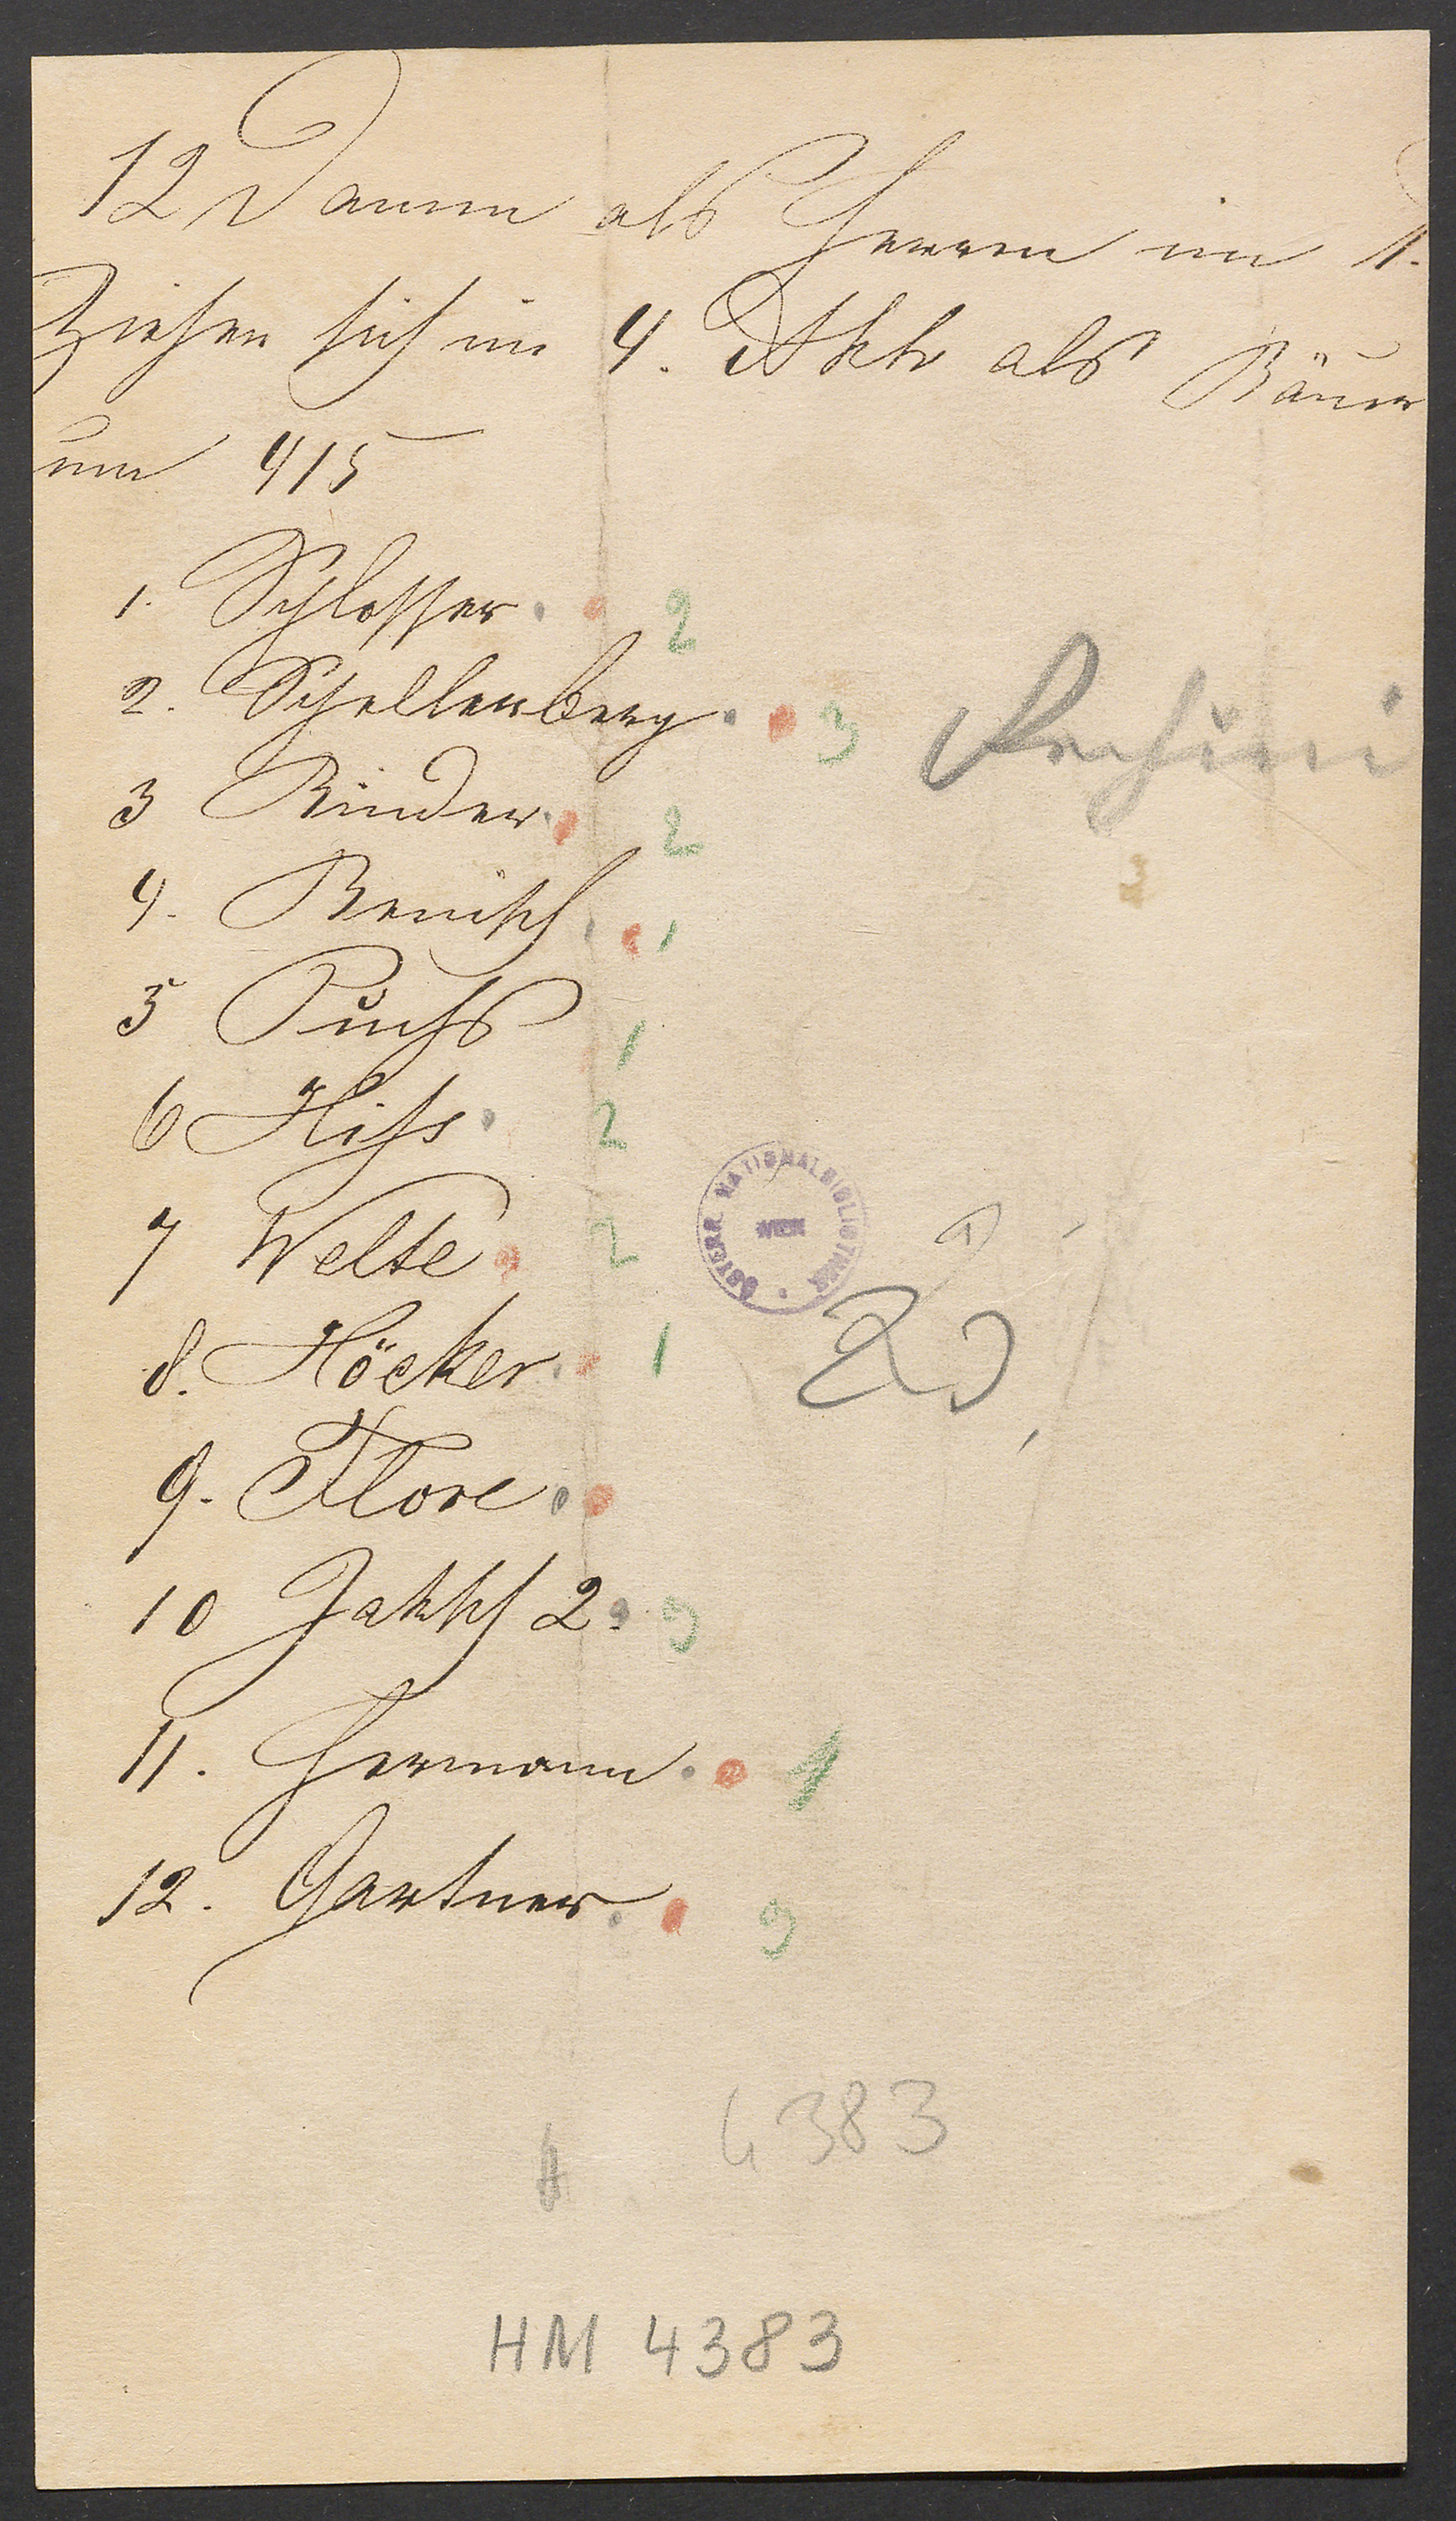 12 Damen als Herren im 1.
Ziehen sich im 4. Akte als Bauer
um 415
1. Schlosser. 2
2. Schellenberg. 3
3 Binder. 2
4. Benisch. 1
5 Fuchs 1
6 Hiss. 2
7 Welte 2
8. Höcker. 1
9. Flore.
10 Jaksch 2. 3
11. Hermann. 1
12. Gartner. 3
ÖSTERR. NATIONALBIBLIOTHEK
WIEN
4383
HM 4383